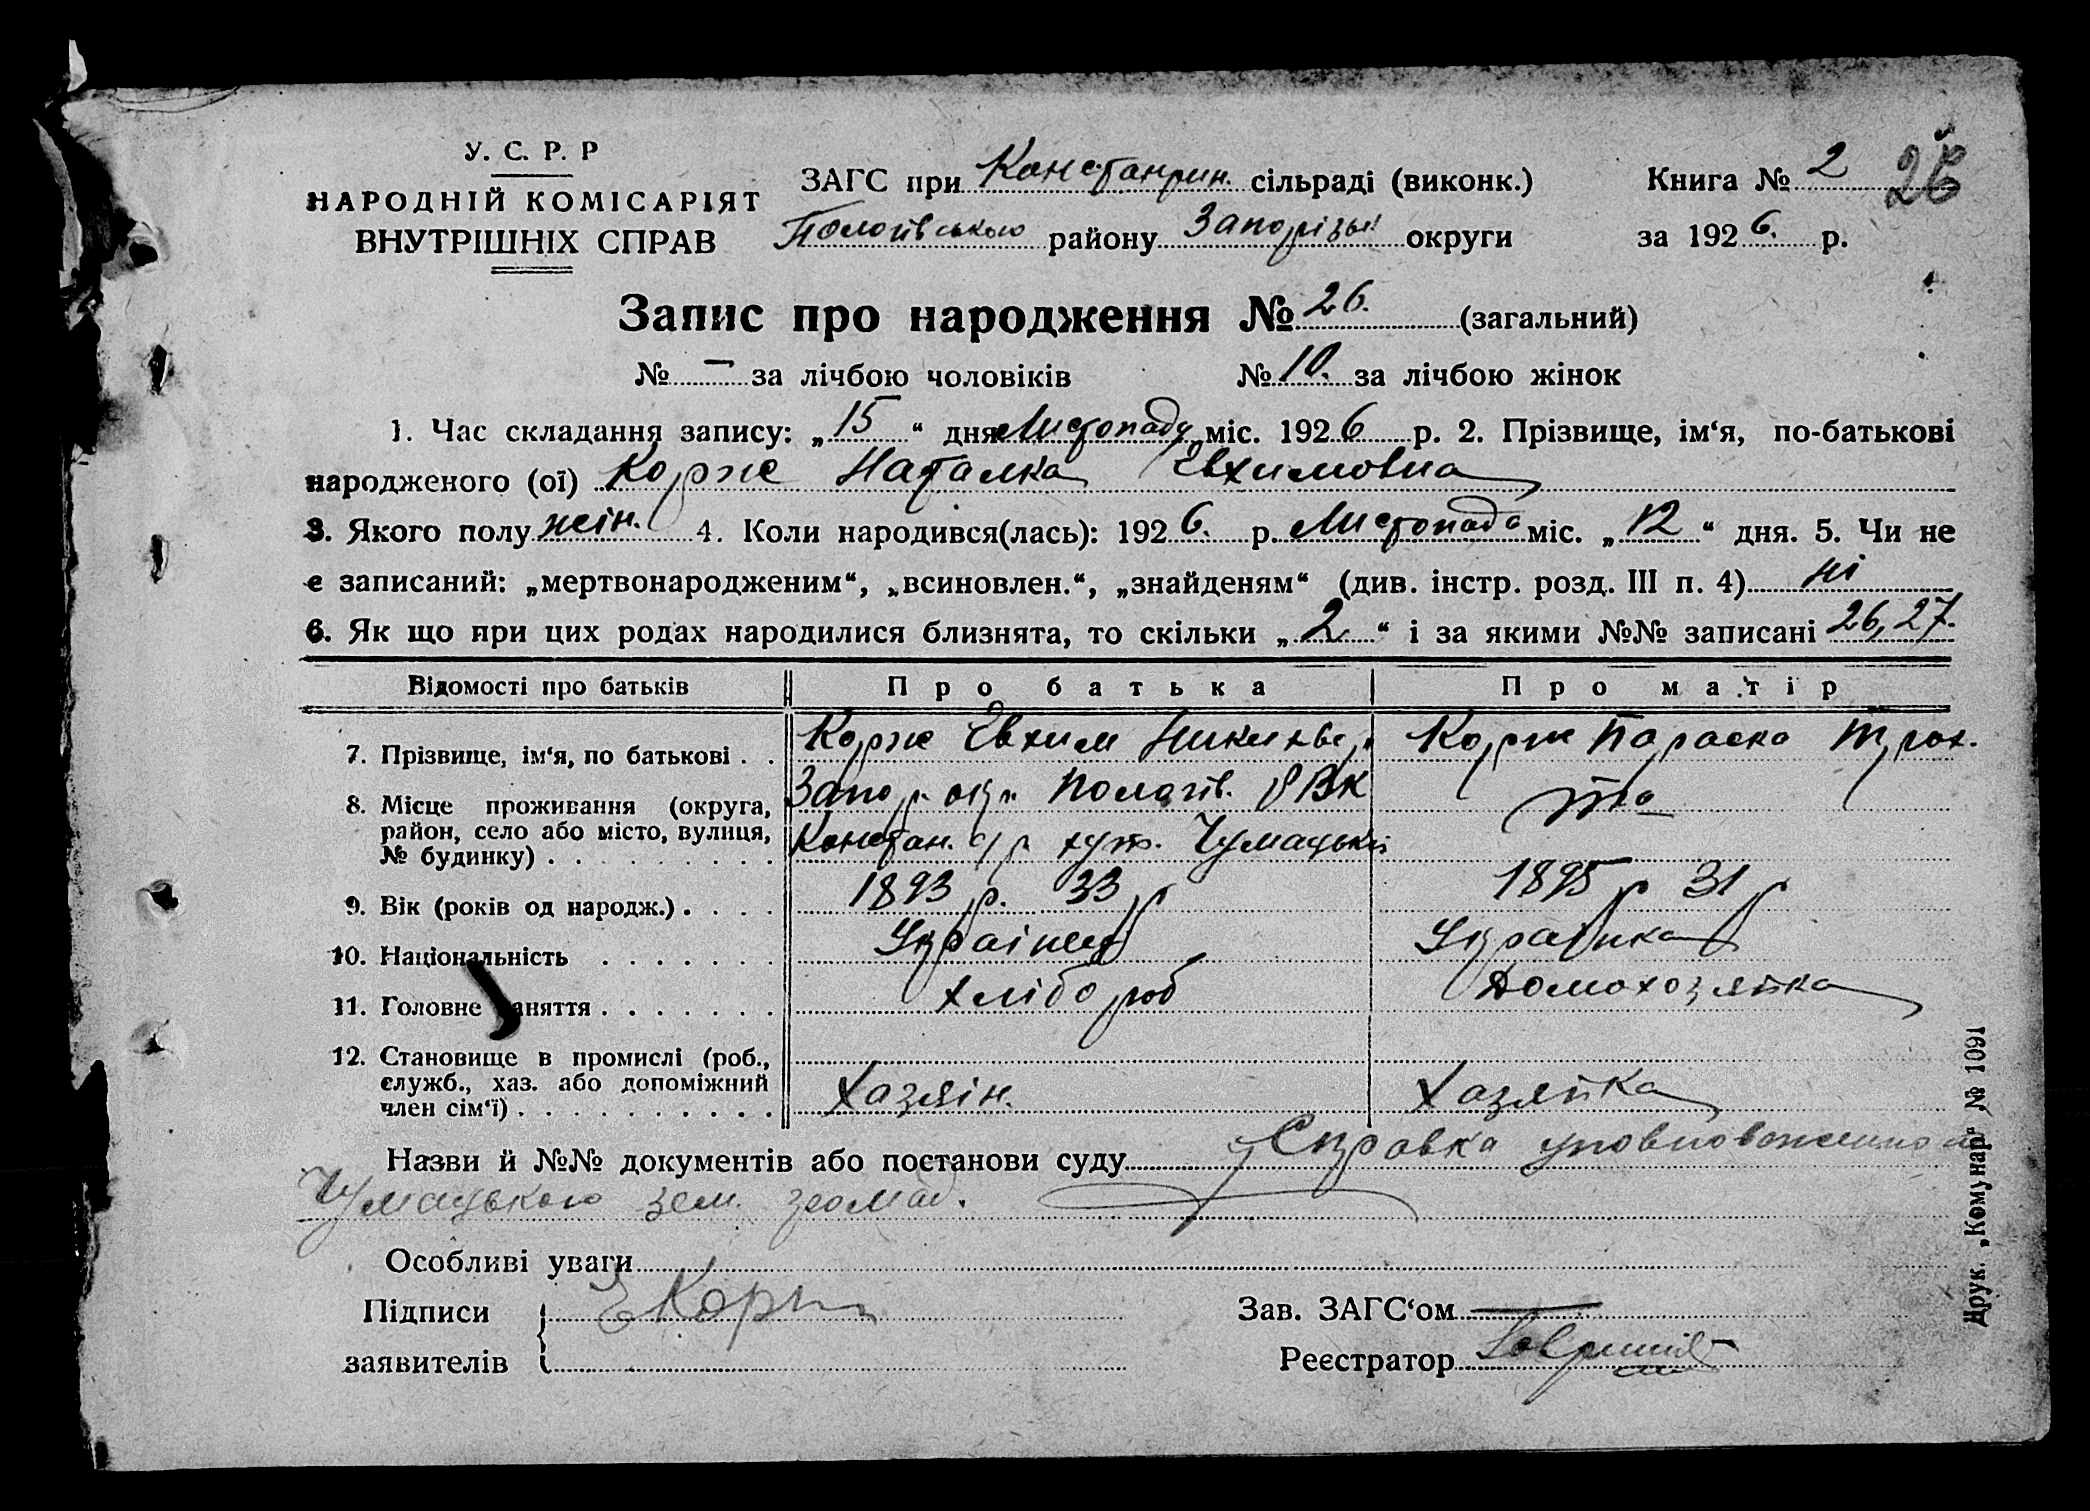 У. С. Р. Р
НАРОДНІЙ КОМІСАРІЯТ
ВНУТРІШНІХ СПРАВ
ЗАГС при Константин. сільраді (виконк.)
Пологівського району Запорізьк округи
Книга № 2 26
за 1926. р.
Запис про народження № 26. (загальний)
№ — за лічбою чоловіків № 10. за лічбою жінок
1. Час складання запису: „15“ дня Листопада міс. 1926 р. 2. Прізвище, ім‘я, по-батькові
народженого (ої) Корж Наталка Евхимовна
3. Якого полу жін. 4. Коли народився(лась): 1926. р. Листопада міс. „12“ дня. 5. Чи не
є записаний: „мертвонародженим“, „всиновлен.“, „знайденям“ (див. інстр. розд. III п. 4) ні
6. Як що при цих родах народилися близнята, то скільки „2“ і за якими №№ записані 26, 27.
Відомості про батьків Про батька Про матір
7. Прізвище, ім‘я, по батькові . . Корж Евхим Корж Параска Трох.
8. Місце проживання (округа, Запор. окр. Пологів. РВК то
район, село або місто, вулиця, Констан. с/р хут. Чумацький
№ будинку) . . . . . . . . .
9. Вік (років од народж.) . . . . 1893 р. 33 р 1895 р 31 р
10. Національність . . . . . . . Українец Українка
11. Головне заняття . . . . . . . Хлібороб Домохозяйка
12. Становище в промислі (роб.,
служб., хаз. або допоміжний
член сім‘ї) . . . . . . . . . . Хазяін. Хазяйка
Назви й №№ документів або постанови суду Справка уповноваженного
Чумацького зем. громад.
Особливі уваги
Підписи Е Корж
заявителів
Зав. ЗАГС‘ом —
Реєстратор
Друк. „Комунар“ № 1091